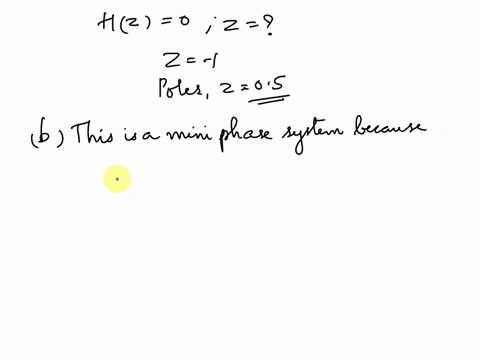 H(z) = 0 ; z = ?
z = -1
Poles, z = 0.5
(b) This is a mini phase system because